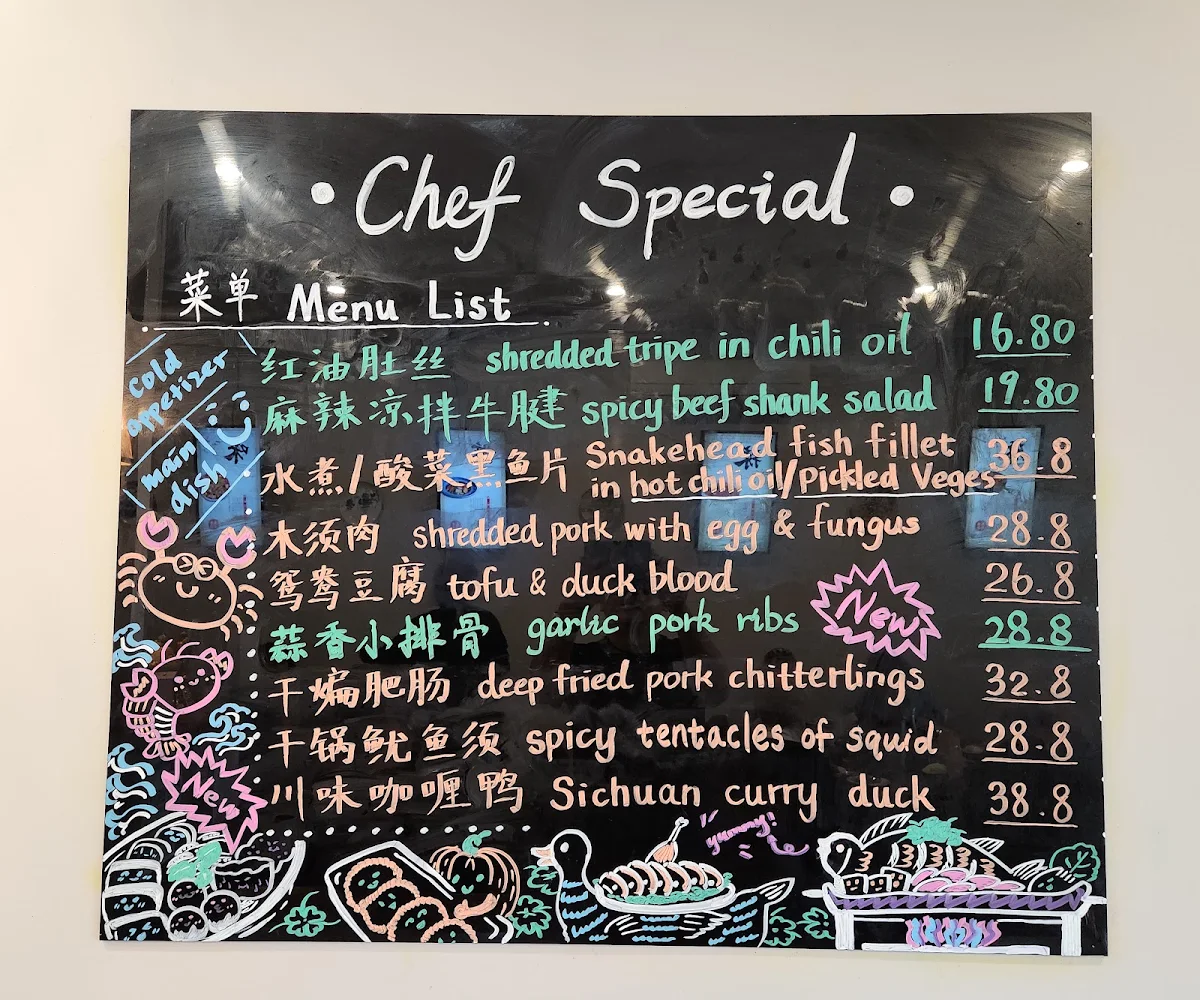 · Chef Special ·
菜单 Menu List
cold appetizer
红油肚丝 shredded tripe in chili oil 16.80
麻辣凉拌牛腱 spicy beef shank salad 19.80
main dish
水煮/酸菜黑鱼片 Snakehead fish fillet in hot chili oil/Pickled Veges 36.8
木须肉 shredded pork with egg & fungus 28.8
鸳鸯豆腐 tofu & duck blood 26.8
蒜香小排骨 garlic pork ribs New 28.8
干煸肥肠 deep fried pork chitterlings 32.8
干锅鱿鱼须 spicy tentacles of squid 28.8
New
川味咖喱鸭 Sichuan curry duck 38.8
yummy!